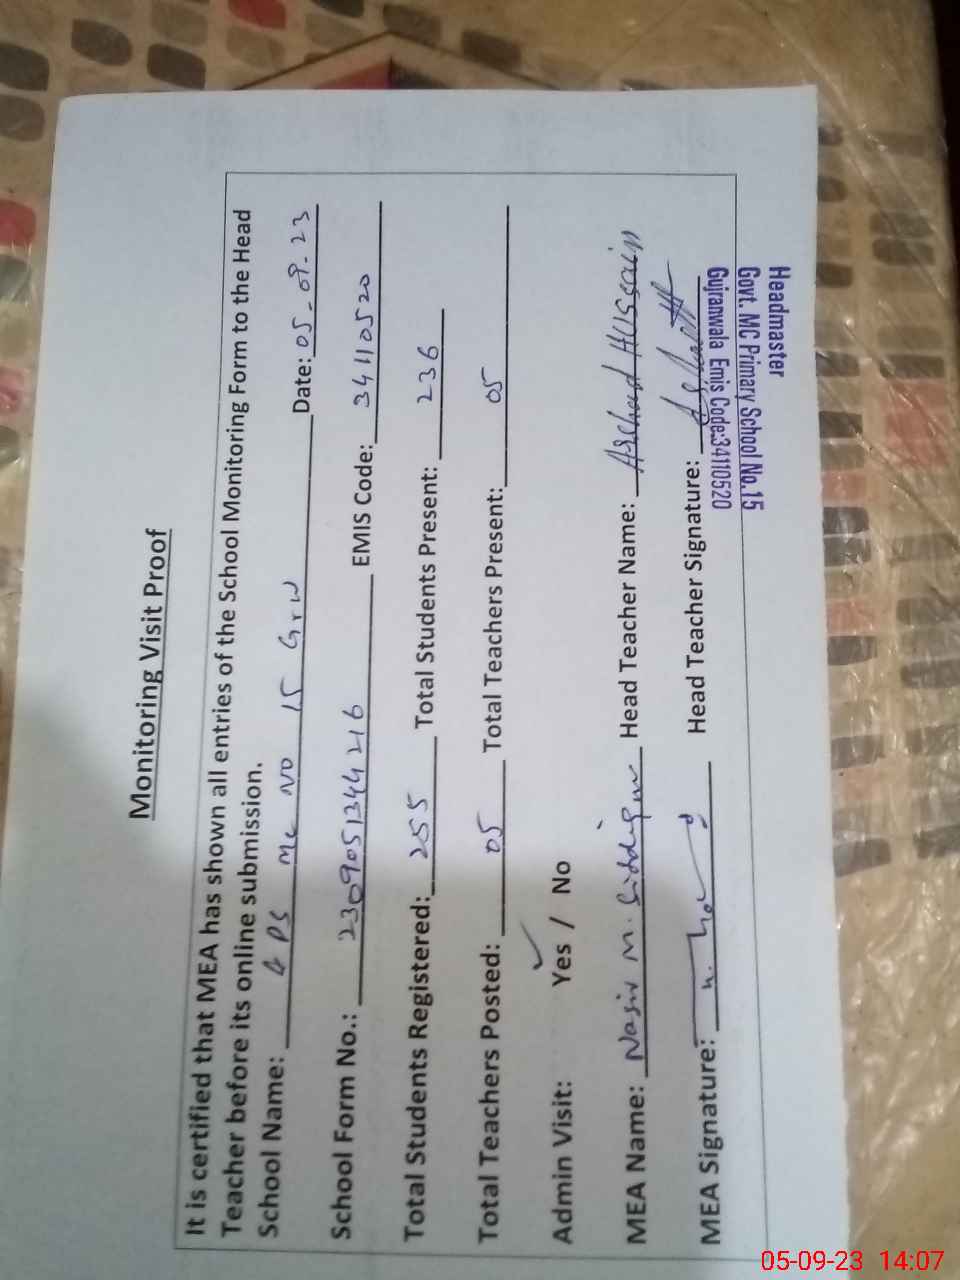 Monitoring Visit Proof
It is certified that MEA has shown all entries of the School Monitoring Form to the Head
Teacher before its online submission.
School Name: GPS MC NO 15 Grw Date: 05-09-23
School Form No.: 230905134421 6 EMIS Code: 34110520
Total Students Registered: 255 Total Students Present: 236
Total Teachers Posted: 05 Total Teachers Present: 05
Admin Visit: Yes / No
MEA Name: Nasir M. Head Teacher Name: Arshad Hussain
MEA Signature: Head Teacher Signature:
Headmaster
Govt. MC Primary School No.15
Gujranwala Emis Code:34110520
05-09-23 14:07